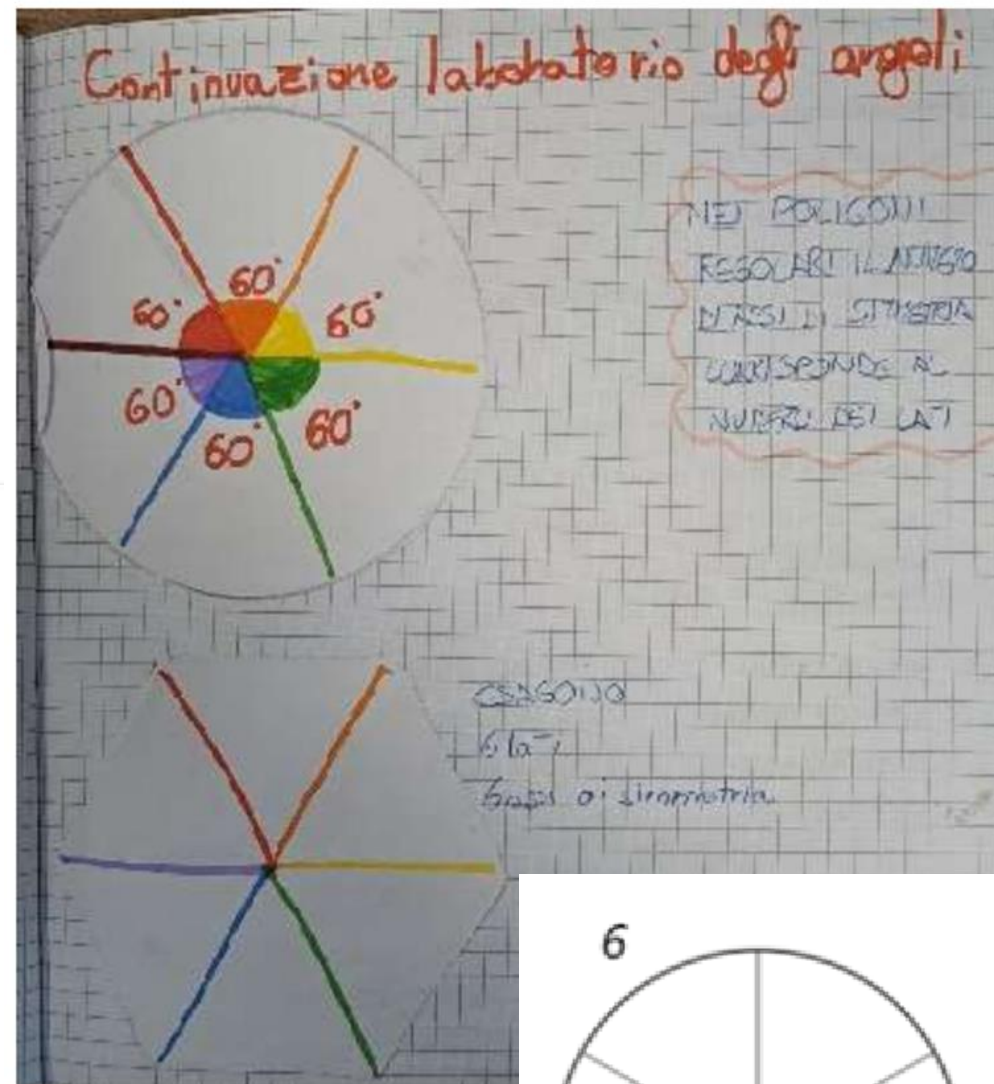 Continuazione laboratorio degli angoli
60°
60°
60°
60°
60°
60°
NEI POLIGONI
REGOLARI IL NUMERO
DI ASSI DI SIMMETRIA
CORRISPONDE AL
NUMERO DEI LATI
ESAGONO
6 lati
6 assi di simmetria
6